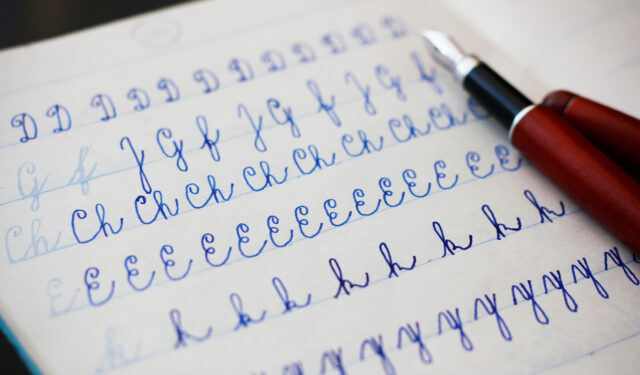 D D D D D D D D D D D D
G f J G f J G f J G f
Ch Ch Ch Ch Ch Ch Ch Ch Ch
E E E E E E E E E E E E E E E
k k k k k k k k k
y y y y y y y y